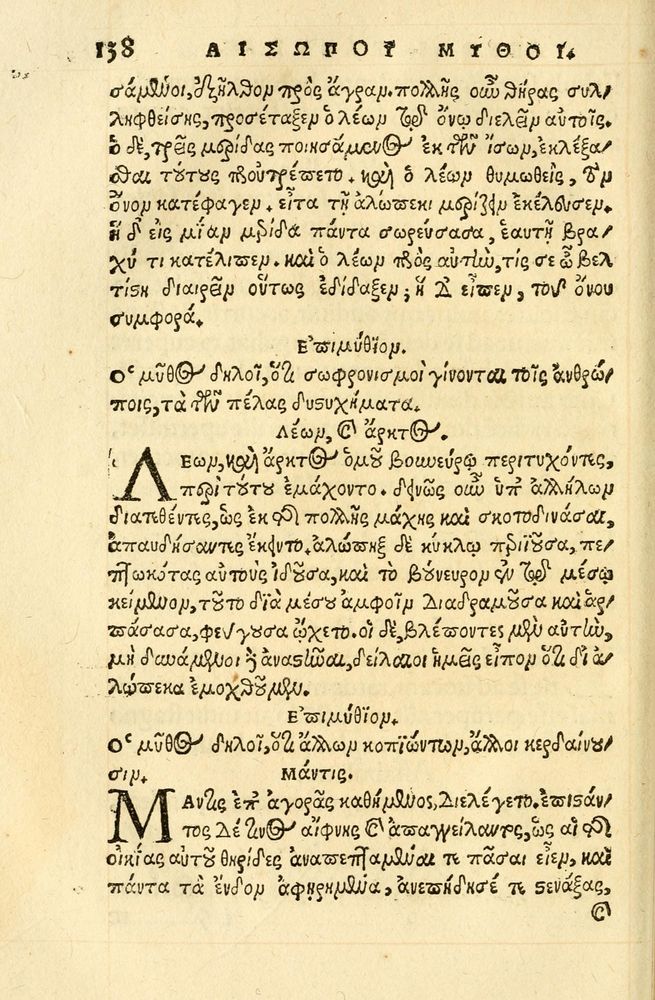 138 ΑΙΣΩΠΟΥ ΜΥΘΟΙ.
σάμενοι, ἐξῆλθον πρὸς ἄγραν. πολλῆς οὖν θήρας συλ/
ληφθείσης, προσέταξεν ὁ λέων τῷ ὄνῳ διελεῖν αὐτοῖς.
ὁ δὲ, τρεῖς μερίδας ποιησάμενος ἐκ τῶν ἴσων, ἐκλέξα/
σθαι τούτους προὐτρέπετο. καὶ ὁ λέων θυμωθεὶς, τὸν
ὄνον κατέφαγεν. εἶτα τῇ ἀλώπεκι μερίζειν ἐκέλευσεν.
ἡ δ' εἰς μίαν μερίδα πάντα σωρεύσασα, ἑαυτῇ βρα/
χύ τι κατέλιπεν. καὶ ὁ λέων πρὸς αὐτὴν, τίς σε ὦ βελ
τίστη διαιρεῖν οὕτως ἐδίδαξεν; ἡ δ' εἶπεν, τοῦ ὄνου
συμφορά.
Επιμύθιον.
Ὁ μῦθος δηλοῖ, ὅτι σωφρονισμοὶ γίνονται τοῖς ἀνθρώ/
ποις, τὰ τῶν πέλας δυστυχήματα.
Λέων, καὶ ἄρκτος.
ΛΕων, καὶ ἄρκτος ὁμοῦ βουνεύρῳ περιτυχόντες,
περὶ τούτου ἐμάχοντο. δεινῶς οὖν ὑπ' ἀλλήλων
διατεθέντες, ὡς ἐκ τῆς πολλῆς μάχης καὶ σκοτοδινάσαι,
ἀπαυδήσαντες ἔκειντο. ἀλώπηξ δὲ κύκλῳ περιιοῦσα, πε/
πτωκότας αὐτοὺς ἰδοῦσα, καὶ τὸ βούνευρον ἐν τῷ μέσῳ
κείμενον, τοῦτο διὰ μέσου ἀμφοῖν διαδραμοῦσα καὶ ἁρ/
πάσασα, φεύγουσα ᾤχετο. οἱ δὲ, βλέποντες μὲν αὐτὴν,
μὴ δυνάμενοι δ' ἀναστῆναι, δείλαιοι ἡμεῖς εἶπον ὅτι δι' ἀ/
λώπεκα ἐμοχθοῦμεν.
Επιμύθιον.
Ὁ μῦθος δηλοῖ, ὅτι ἄλλων κοπιώντων, ἄλλοι κερδαίνου/
σιν. Μάντις.
ΜΑντις ἐπ' ἀγορᾶς καθήμενος, διελέγετο. ἐπιστάν/
τος δέ τινος αἴφνης καὶ ἀπαγγείλαντος, ὡς αἱ τῆς
οἰκίας αὐτοῦ θηρίδες ἀναπεπταμέναι τε πᾶσαι εἶεν, καὶ
πάντα τὰ ἔνδον ἀφῃρημένα, ἀνεπήδησέ τε στενάξας,
καὶ